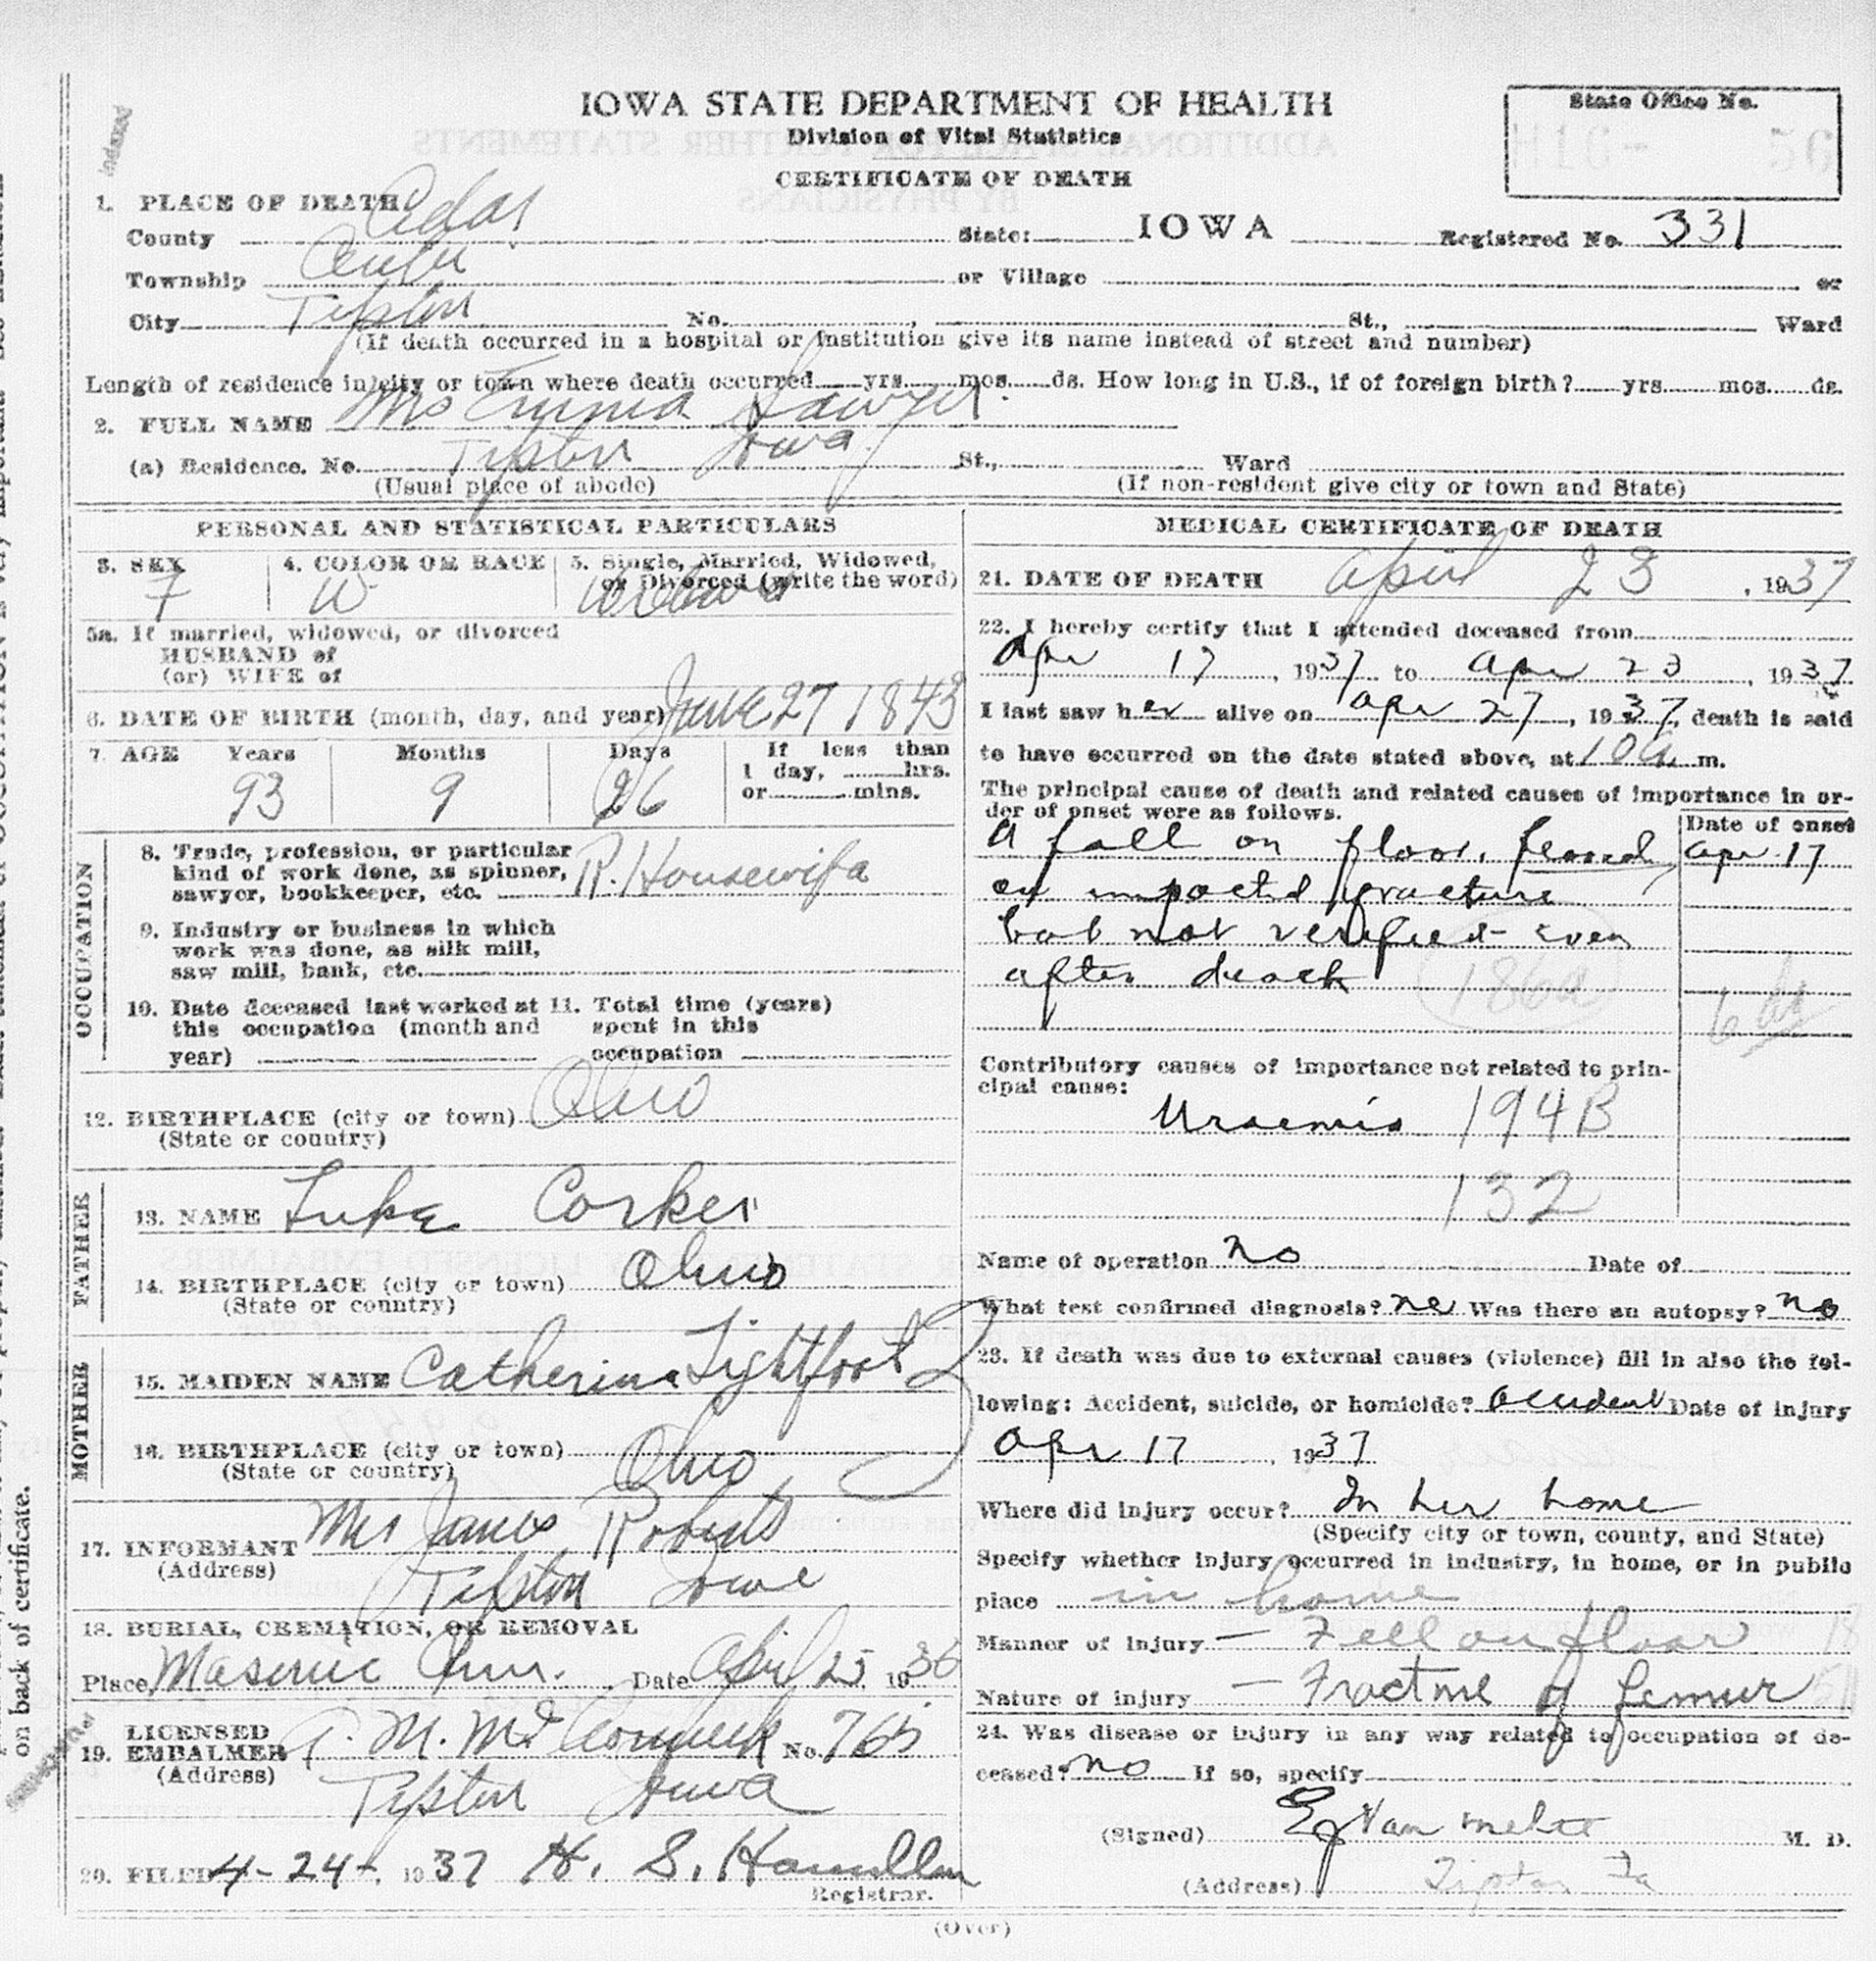 Indexed
IOWA STATE DEPARTMENT OF HEALTH
Division of Vital Statistics
CERTIFICATE OF DEATH
State Office No.
H16- 56
1. PLACE OF DEATH
County Cedar State: IOWA Registered No. 331
Township Center or Village or
City Tipton No. , St., Ward
(If death occurred in a hospital or institution give its name instead of street and number)
Length of residence in city or town where death occurred yrs. mos. ds. How long in U.S., if of foreign birth? yrs. mos. ds.
2. FULL NAME Mrs Emma Sawyer.
(a) Residence. No. Tipton Iowa St., Ward
(Usual place of abode) (If non-resident give city or town and State)
PERSONAL AND STATISTICAL PARTICULARS
3. SEX 4. COLOR OR RACE 5. Single, Married, Widowed,
or Divorced (write the word)
F W Widowed
5a. If married, widowed, or divorced
HUSBAND of
(or) WIFE of
6. DATE OF BIRTH (month, day, and year) June 27 1843
7. AGE Years Months Days If less than
1 day, hrs.
or mins.
93 9 26
OCCUPATION
8. Trade, profession, or particular
kind of work done, as spinner,
sawyer, bookkeeper, etc. R. Housewife
9. Industry or business in which
work was done, as silk mill,
saw mill, bank, etc.
10. Date deceased last worked at
this occupation (month and
year)
11. Total time (years)
spent in this
occupation
12. BIRTHPLACE (city or town) Ohio
(State or country)
FATHER
13. NAME Luke Corker
14. BIRTHPLACE (city or town) Ohio
(State or country)
MOTHER
15. MAIDEN NAME Catherine Lightfoot
16. BIRTHPLACE (city or town) Ohio
(State or country)
17. INFORMANT Mrs James Roberts
(Address) Tipton Iowa
18. BURIAL, CREMATION, OR REMOVAL
Place Masonic Cem. Date April 25, 1936
19. LICENSED
EMBALMER M. McCormick No. 765
(Address) Tipton Iowa
20. FILED 4-24-, 1937 H. S. Hamillen
Registrar.
MEDICAL CERTIFICATE OF DEATH
21. DATE OF DEATH April 23, 1937
22. I hereby certify that I attended deceased from
Apr 17, 1937 to Apr 23, 1937
I last saw her alive on Apr 27, 1937, death is said
to have occurred on the date stated above, at 10 a. m.
The principal cause of death and related causes of importance in or-
der of onset were as follows.
Date of onset
A fall on floor, feared Apr 17
an impacted fracture
but not verified even
after death 186a
Contributory causes of importance not related to prin-
cipal cause:
Uraemia 194B
132
Name of operation no Date of
What test confirmed diagnosis? no Was there an autopsy? no
23. If death was due to external causes (violence) fill in also the fol-
lowing: Accident, suicide, or homicide? Accident Date of injury
Apr 17, 1937
Where did injury occur? In her home
(Specify city or town, county, and State)
Specify whether injury occurred in industry, in home, or in public
place in home
Manner of injury — Fell on floor
Nature of injury — Fracture of femur
24. Was disease or injury in any way related to occupation of de-
ceased? no If so, specify
(Signed) Van Metre M. D.
(Address) Tipton Ia
(Over)
on back of certificate.